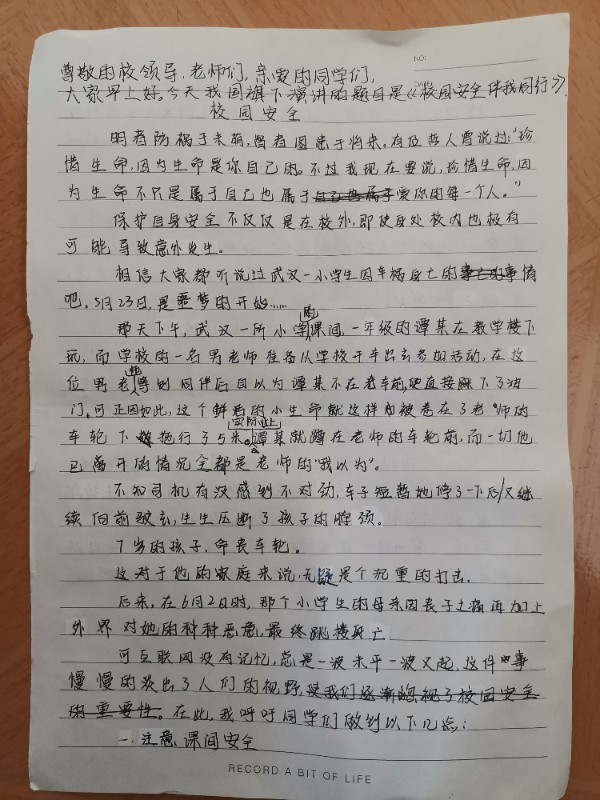 NO:
尊敬的校领导,老师们,亲爱的同学们,
DATE:
大家早上好。今天我国旗下演讲的题目是《校园安全伴我同行》.
校园安全
明者防祸于未萌,智者图患于将来。有位哲人曾说过:"珍
惜生命,因为生命是你自己的。不过我现在要说,珍惜生命,因
为生命不只是属于自己也属于爱你的每一个人。"
保护自身安全不仅仅是在校外,即使身处校内也极有
可能导致意外发生。
相信大家都听说过武汉一小学生因车祸身亡的事情
吧。5月23日,是噩梦的开始……
那天下午,武汉一所小学的课间,一年级的谭某在教学楼下
玩,而学校的一名男老师准备从学校开车出去参加活动,在这
位男老师等到同伴后自以为谭某不在车前便直接踩下了油
门。可正因如此,这个鲜活的小生命就这样被卷在了老师的
车轮下拖行了5米。实际上谭某就蹲在老师的车轮前,而一切他
已离开的情况全都是老师的"我以为"。
不知司机有没感到不对劲,车子短暂地停了一下后/又继
续向前驶去,生生压断了孩子的脖颈。
7岁的孩子,命丧车轮。
这对于他的家庭来说,无疑是个沉重的打击.
后来,在6月2日时,那个小学生的母亲因丧子之痛再加上
外界对她的种种恶意,最终跳楼死亡
可互联网没有记忆,总是一波未平一波又起,这件事
慢慢的淡出了人们的视野,使我们逐渐忽视了校园安全
的重要性。在此,我呼吁同学们做到以下几点:
一、注意课间安全
RECORD A BIT OF LIFE